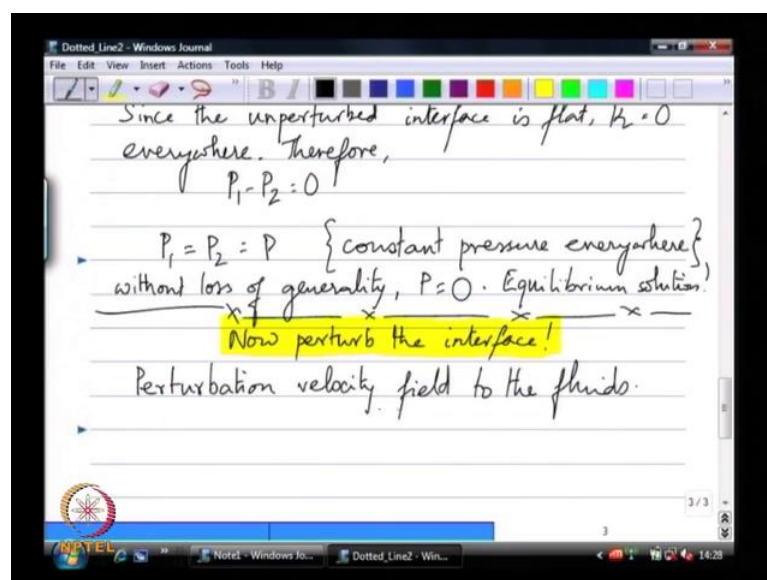 Dotted_Line2 - Windows Journal
File Edit View Insert Actions Tools Help
B I
Since the unperturbed interface is flat, K = 0
everywhere. Therefore,
P1 - P2 = 0
P1 = P2 = P {constant pressure everywhere}
without loss of generality, P = 0. Equilibrium solution!
Now perturb the interface!
Perturbation velocity field to the fluids.
3/3
3
NPTEL
Note1 - Windows Jo... Dotted_Line2 - Win... 14:28